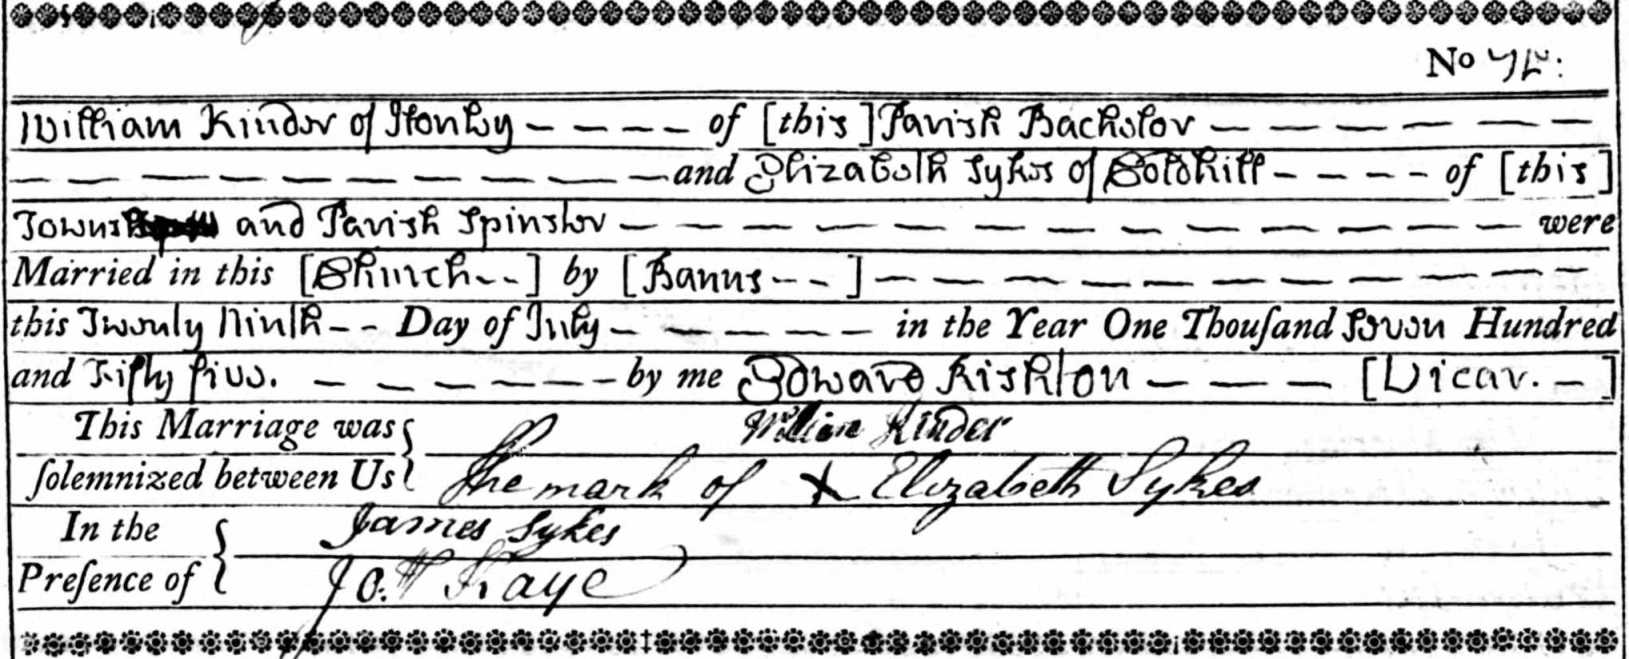 No 75:
William Kinder of Honley - - - - of [this] Parish Bachelor - - - - - -
- - - - - - - - - - and Elizabeth Sykes of Goldhill - - - - of [this]
Township and Parish Spinster - - - - - - - - - - - were
Married in this [Church - -] by [Banns - - ] - - - - - - - - -
this Twenty Ninth - - Day of July - - - - - in the Year One Thouſand Seven Hundred
and Fifty five. - - - - - by me Edward Rishton - - - [Vicar. -]
This Marriage was { William Kinder
ſolemnized between Us { The mark of X Elizabeth Sykes
In the { James Sykes
Preſence of { Jo. Kaye